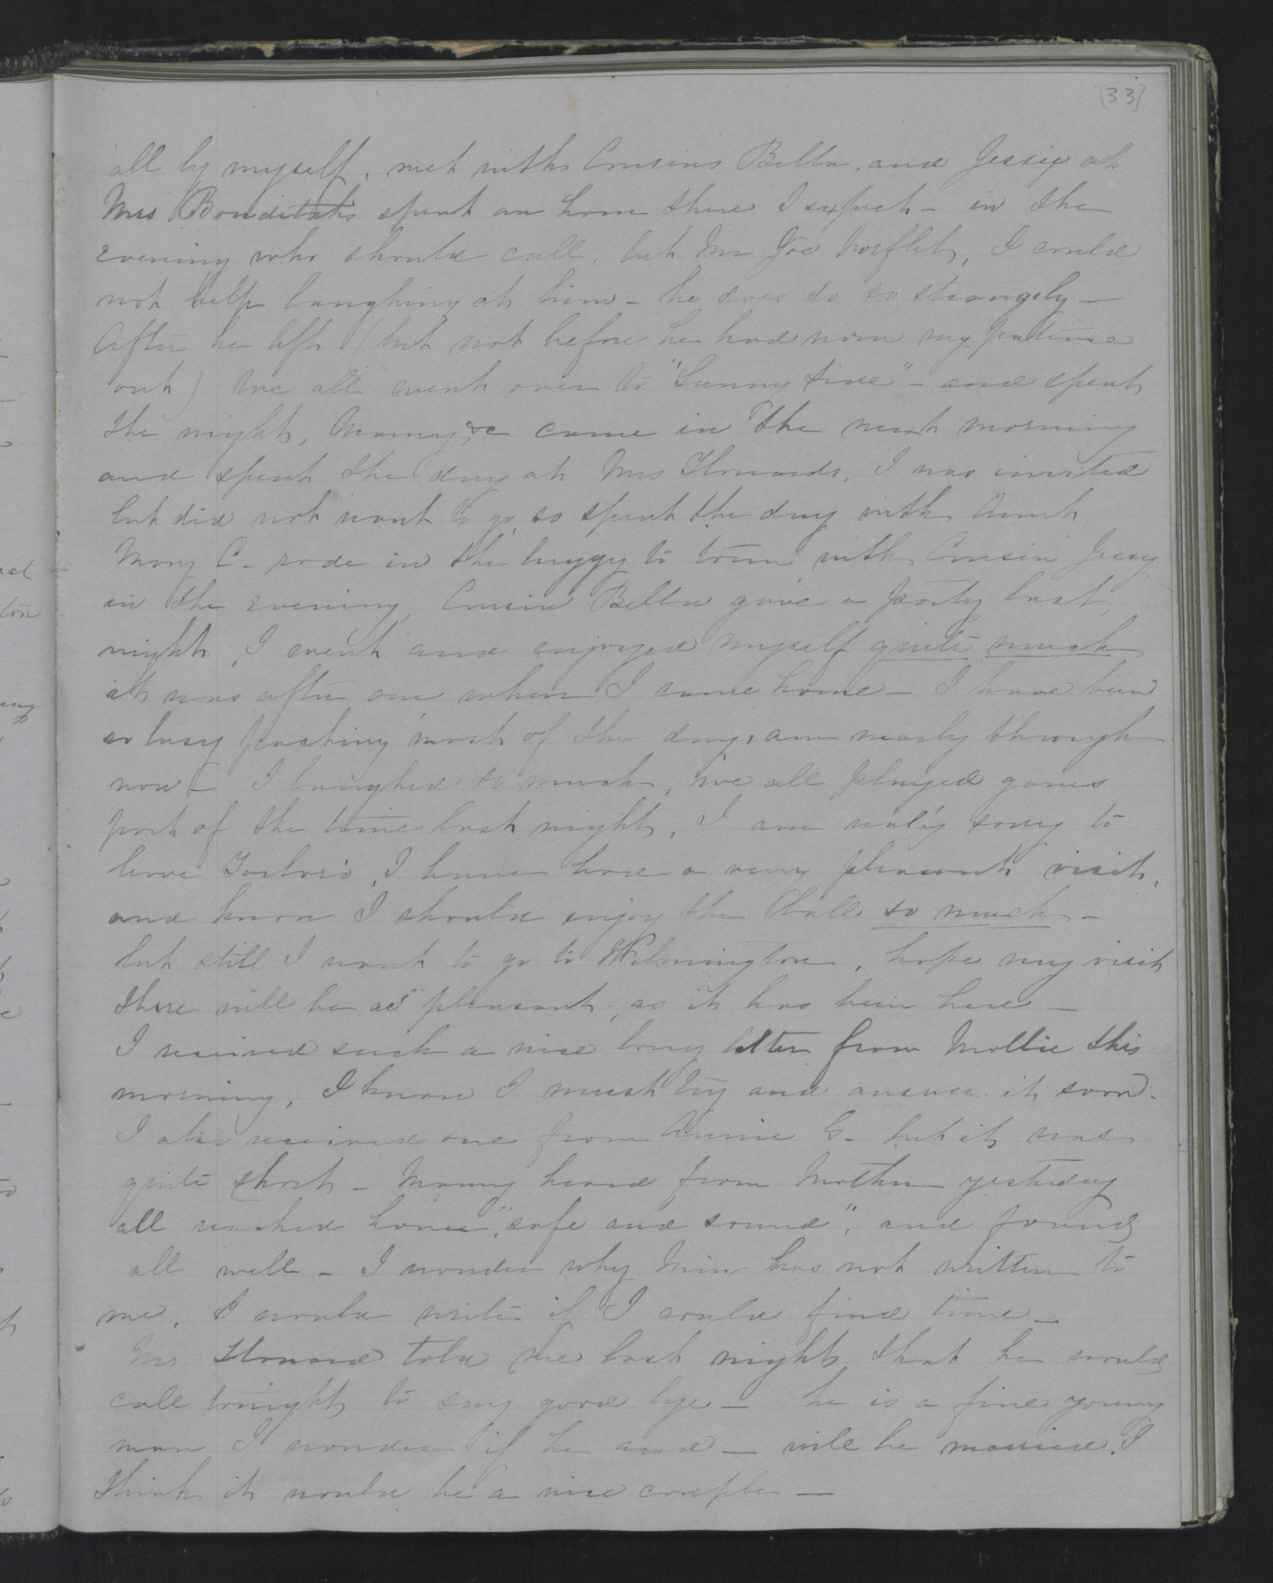 (33)
all by myself, met with Cousins Bella, and Jessie at
Mrs Bonditch's spent an hour there I expect - in the
evening who should call, but Mr Joe I could
not help laughing at him - he does do so strangely -
After he left (but not before he had worn my patience
out) we all went over to "Sunny side" - and spent
the night, Mamy &c came in the next morning
and spent the day at Mrs Howards, I was invited
but did not want to go, so spent the day with Aunt
Mary C - rode in the buggy to town with Cousin Jessy
in the evening, Cousin Bella gave a party last
night, I went and enjoyed myself quite much
it was after one when I came home - I have been
so busy packing most of the day, am nearly through
now - I laughed so much, we all played games
part of the time last night, I am really sorry to
leave Tarboro, I have had a very pleasant visit,
and know I should enjoy the Ball so much -
but still I want to go to Wilmington, hope my visit
there will be as pleasant, as it has been here -
I received such a nice long letter from Mollie this
morning, I know I must try and answer it soon -
I also received one from Annie G - but it was
quite short - Mamy heard from Mother yesterday
all reached home, "safe and sound", and found
all well - I wonder why has not written to
me, I would write if I could find time -
Mr Howard told me last night that he would
call tonight to say good bye - he is a fine young
man I wonder if he and - will be married, I
think it would be a nice couple -